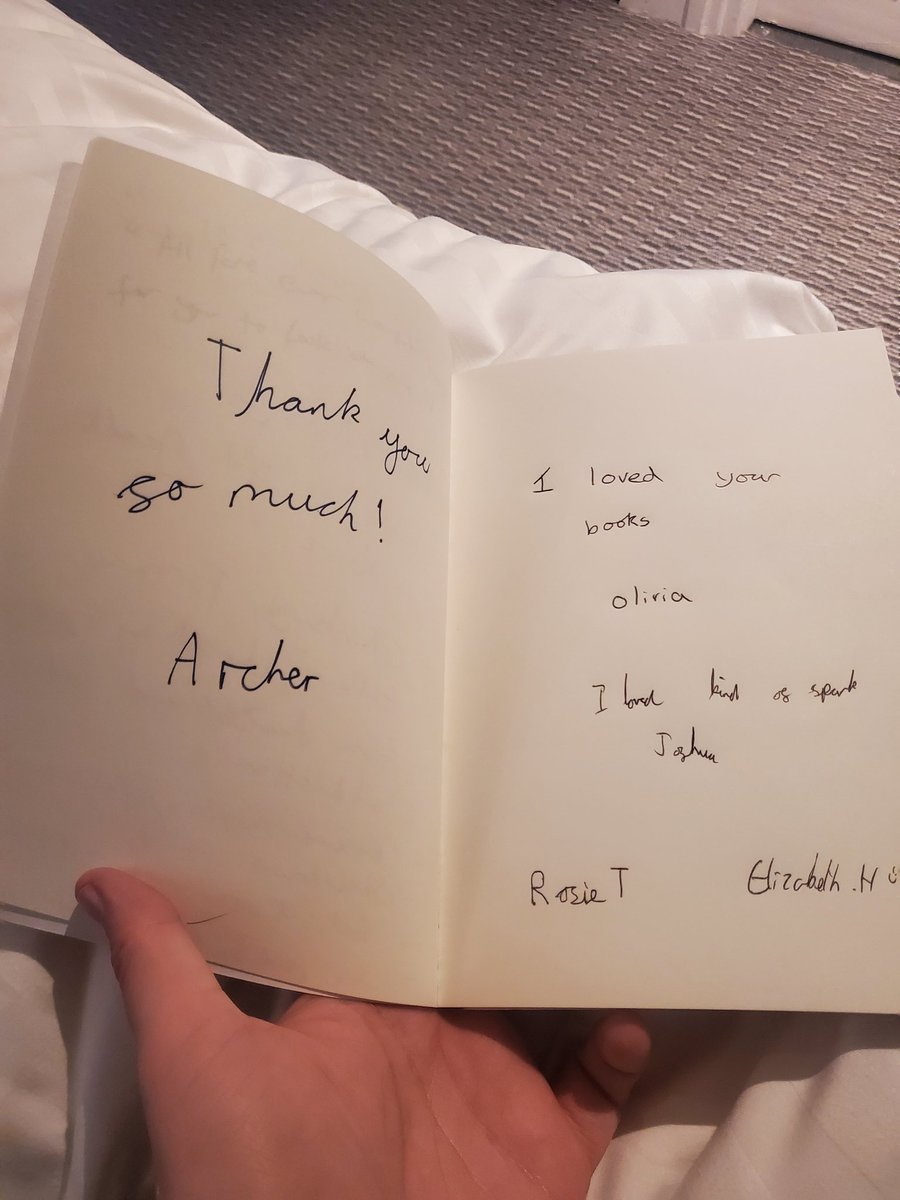 Thank you
so much!
Archer
I loved your
books
olivia
I loved kind of spark
Joshua
Rosie T
Elizabeth .H